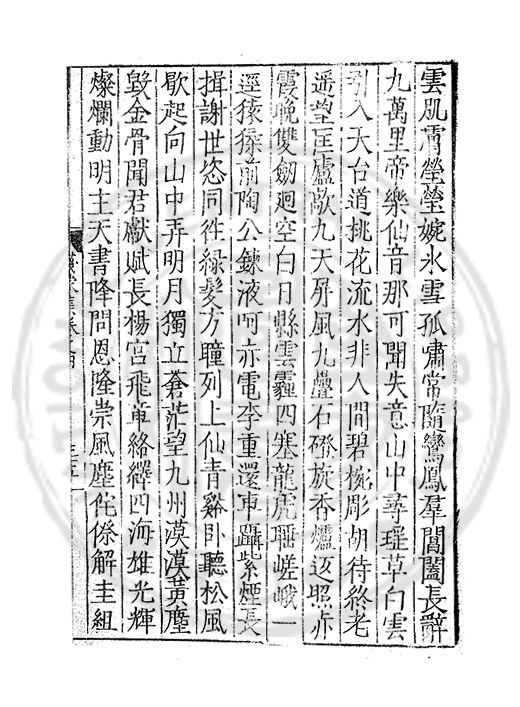 雲肌膚瑩瑩婉氷雪孤嘯常隨鸞鳳羣閶闔長辭
九萬里帝樂仙音那可聞失意山中尋瑶草白雲
引入天台道挑花流水非人間碧椀彫胡待終老
遥望匡廬敞九天屏風九疊石磴旋香爐迒照赤
霞晚雙劒廻空白日縣雲霾四塞龍虎𥈭嵯峨一
逕猿猱前陶公錬液呵赤電李重還車躡紫煙長
揖謝世恣同徃緑髮方瞳列上仙青谿卧聽松風
歇起向山中弄明月獨立蒼茫望九州漠漠黄塵
毀金骨聞君獻賦長楊宮飛軍絡繹四海雄光輝
燦爛動明主天書降問恩隆崇風塵侘傺解圭組